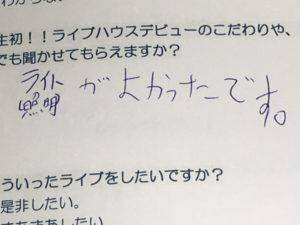 生初！！ライブハウスデビューのこだわりや、
でも聞かせてもらえますか？
ライト
照明 がよかったです。
ういったライブをしたいですか？
是非したい。